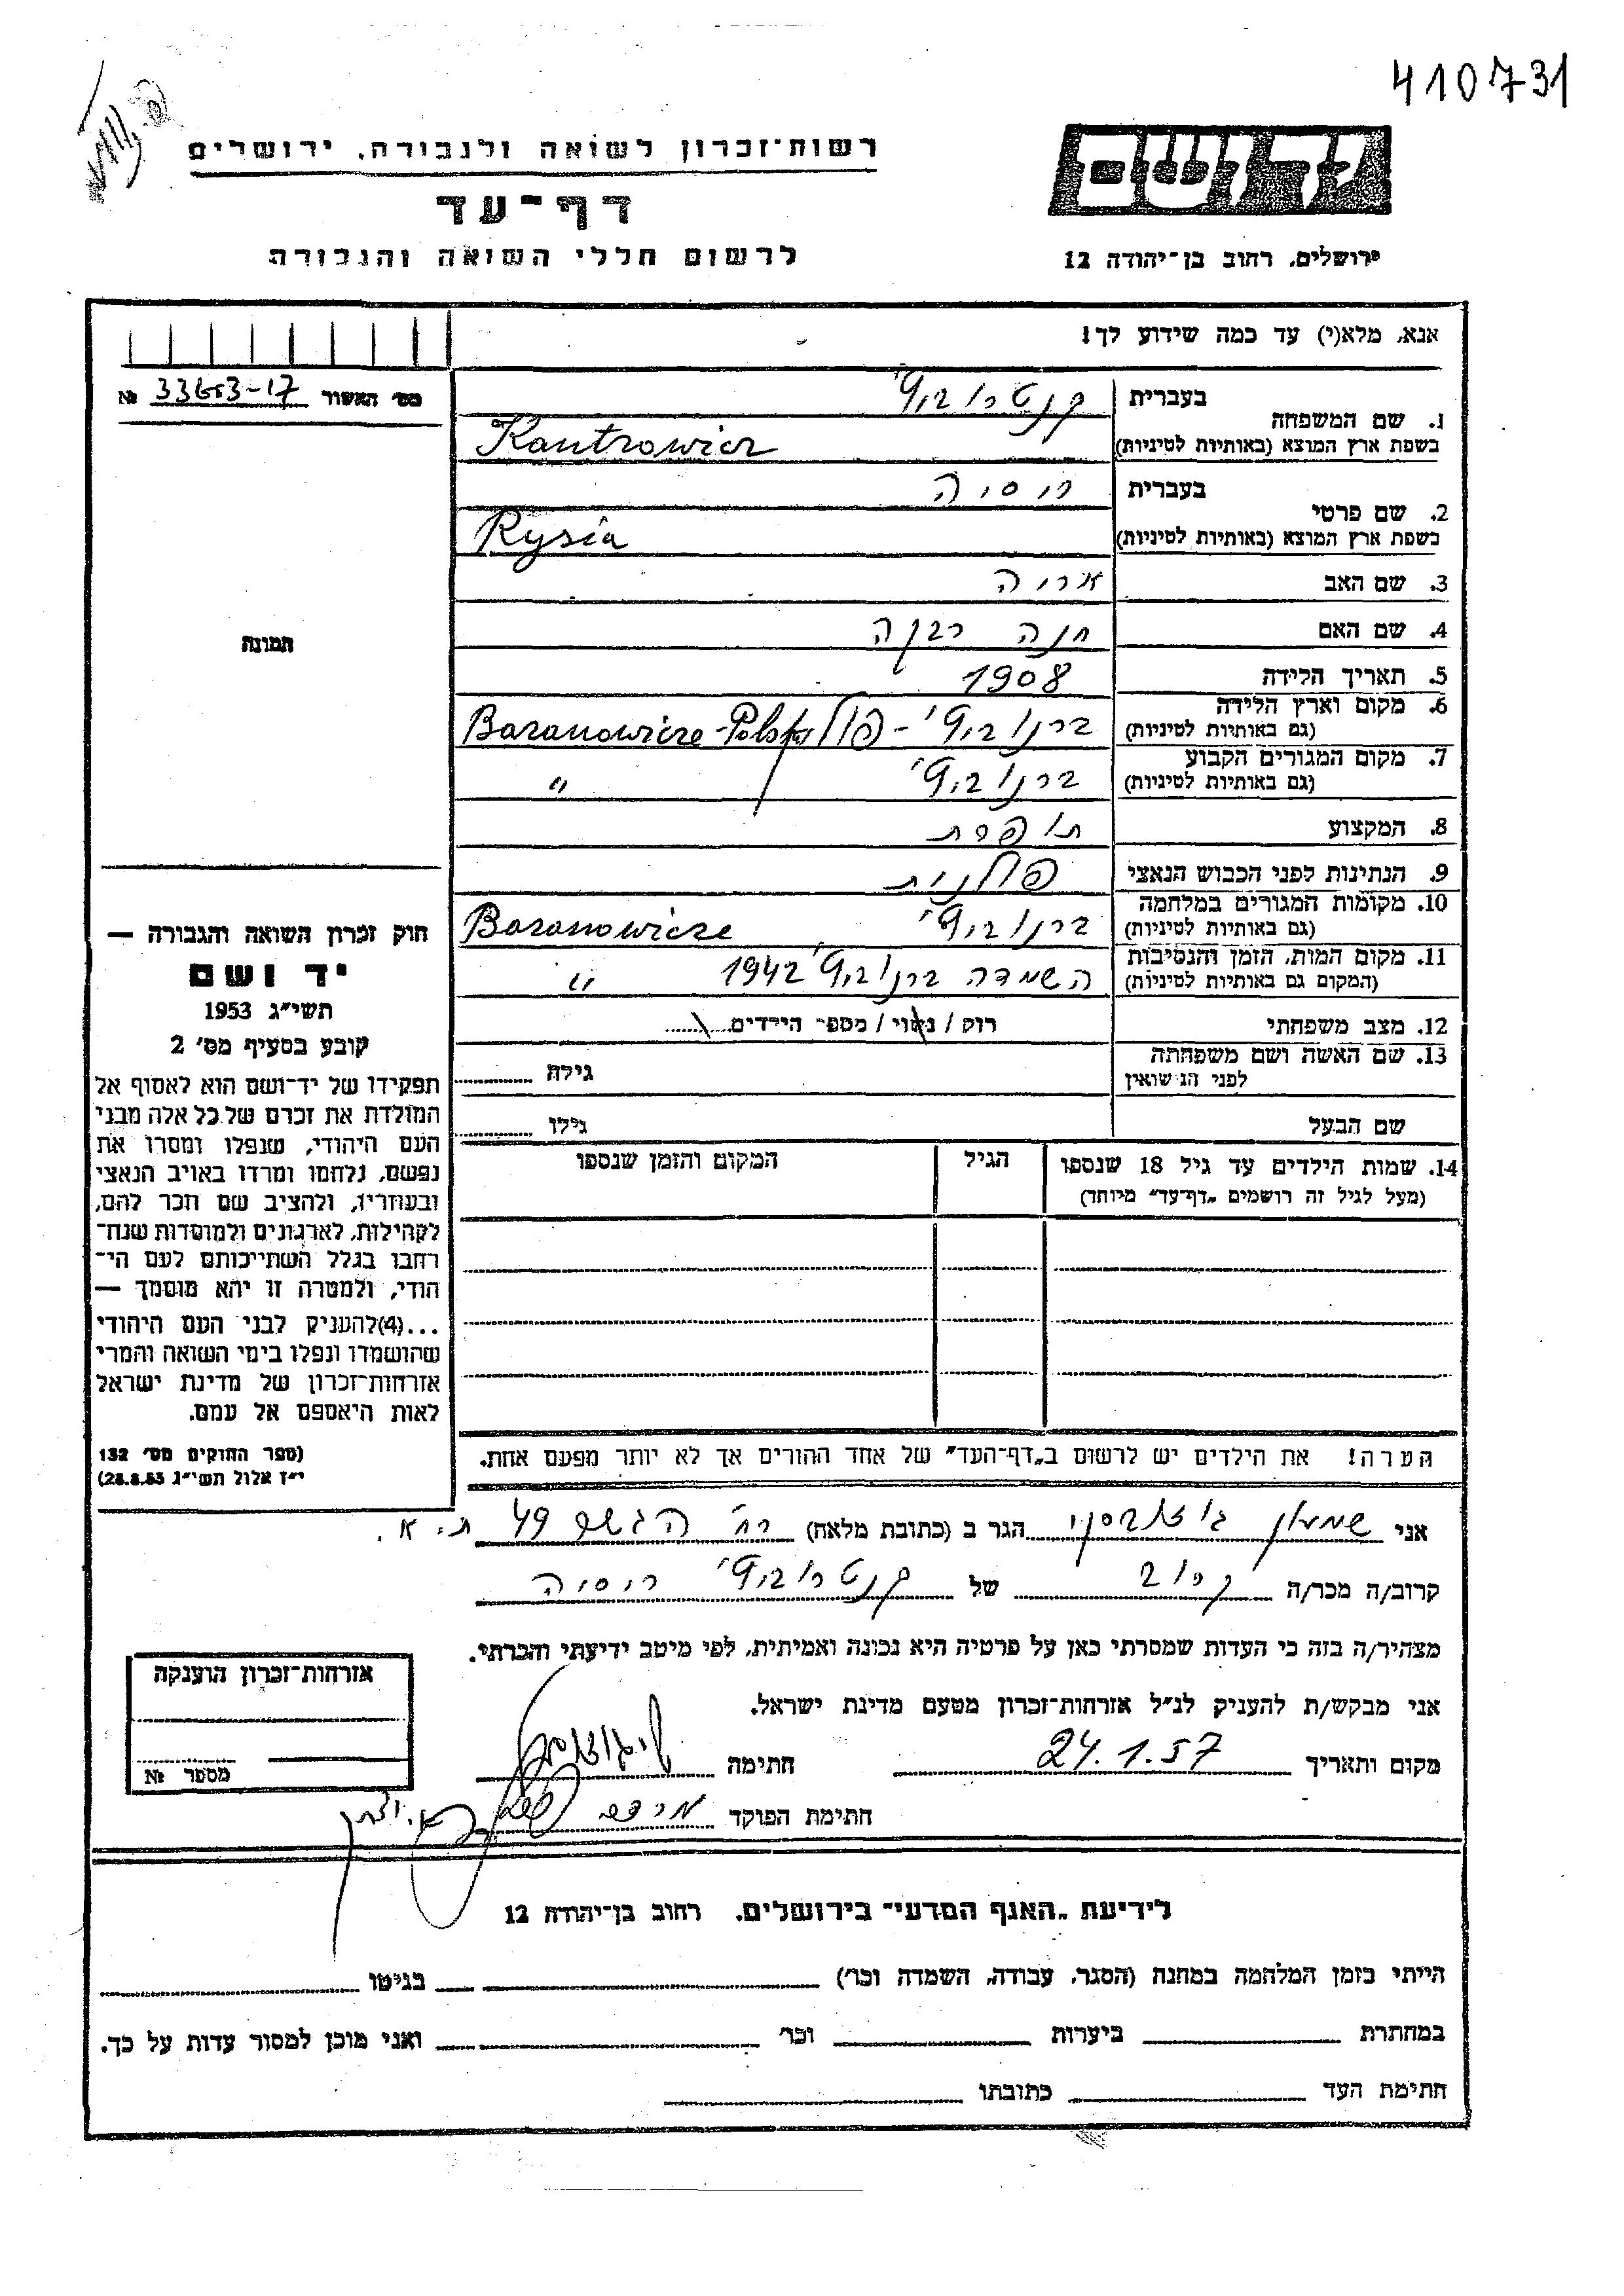 410731
יד ושם
רשות־זכרון לשואה ולגבורה, ירושלים
דף־עד
לרשום חללי השואה והגבורה
ירושלים, רחוב בן־יהודה 12
אנא, מלא(י) עד כמה שידוע לך!
מס׳ האשור № 33653-17
תמונה
1. שם המשפחה
בעברית קנטרוביץ'
בשפת ארץ המוצא (באותיות לטיניות) Kantrowicz
2. שם פרטי
בעברית ריסיה
בשפת ארץ המוצא (באותיות לטיניות) Rysia
3. שם האב אריה
4. שם האם חנה רבקה
5. תאריך הלידה 1908
6. מקום וארץ הלידה ברנוביץ' - פולין Baranowicze - Polska
(גם באותיות לטיניות)
7. מקום המגורים הקבוע ברנוביץ' "
(גם באותיות לטיניות)
8. המקצוע תופרת
9. הנתינות לפני הכבוש הנאצי פולנית
10. מקומות המגורים במלחמה ברנוביץ' Baranowicze
(גם באותיות לטיניות)
11. מקום המות, הזמן והנסיבות השמדה ברנוביץ' 1942 "
(המקום גם באותיות לטיניות)
12. מצב משפחתי רוק / נשוי / מספר הילדים
13. שם האשה ושם משפחתה גילה
לפני הנשואין
שם הבעל גילו
14. שמות הילדים עד גיל 18 שנספו הגיל המקום והזמן שנספו
(מעל לגיל זה רושמים „דף־עד״ מיוחד)
הערה! את הילדים יש לרשום ב„דף־העד״ של אחד ההורים אך לא יותר מפעם אחת.
חוק זכרון השואה והגבורה —
יד ושם
תשי״ג 1953
קובע בסעיף מס׳ 2
תפקידו של יד־ושם הוא לאסוף אל
המולדת את זכרם של כל אלה מבני
העם היהודי, שנפלו ומסרו את
נפשם, נלחמו ומרדו באויב הנאצי
ובעוזריו, ולהציב שם וזכר להם,
לקהילות, לארגונים ולמוסדות שנח־
רחבו בגלל השתייכותם לעם הי־
הודי, ולמטרה זו יהא מוסמך —
...(4)להעניק לבני העם היהודי
שהושמדו ונפלו בימי השואה והמרי
אזרחות־זכרון של מדינת ישראל
לאות היאספם אל עמם.
(ספר החוקים מס׳ 132
י״ז אלול תשי״ג 28.8.53)
אני שמעון הגר ב (כתובת מלאה) רח' 49 ת.א.
קרוב/ה מכר/ה קרוב של קנטרוביץ' ריסיה
מצהיר/ה בזה כי העדות שמסרתי כאן על פרטיה היא נכונה ואמיתית, לפי מיטב ידיעתי והכרתי.
אני מבקש/ת להעניק לנ״ל אזרחות־זכרון מטעם מדינת ישראל.
מקום ותאריך 24.1.57 חתימה
חתימת הפוקד
אזרחות־זכרון הוענקה
מספר №
לידיעת „האגף המדעי״ בירושלים, רחוב בן־יהודה 12
הייתי בזמן המלחמה במחנה (הסגר, עבודה, השמדה וכו׳) בגיטו
במחתרת ביערות וכו׳ ואני מוכן למסור עדות על כך.
חתימת העד כתובתו